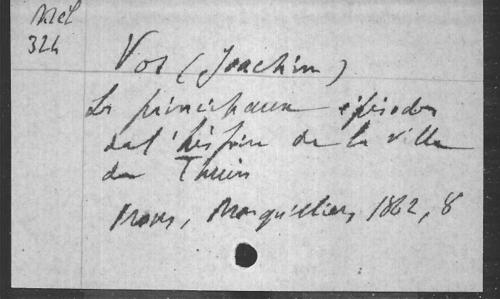 Mél
324
Vos (Joachim)
Les principaux épisodes
de l'histoire de la ville
de Thuin
Mons, Masquillier, 1862, 8